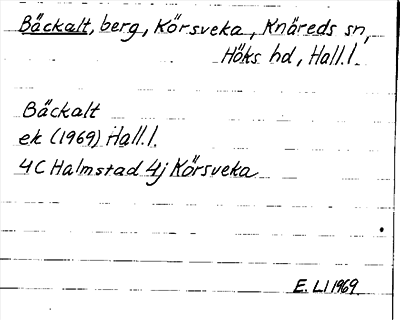 Bäckalt, berg, Körsveka, Knäreds sn,
Höks hd, Hall.l.
Bäckalt
ek (1969) Hall.l.
4C Halmstad 4j Körsveka
E. LI 1969.